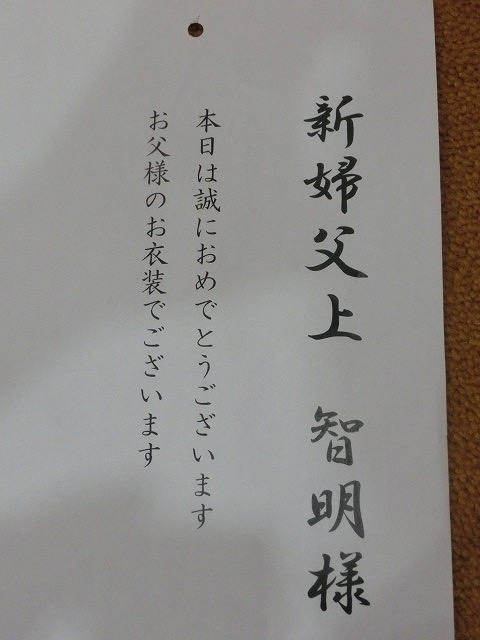 新婦父上　智明様
本日は誠におめでとうございます
お父様のお衣装でございます